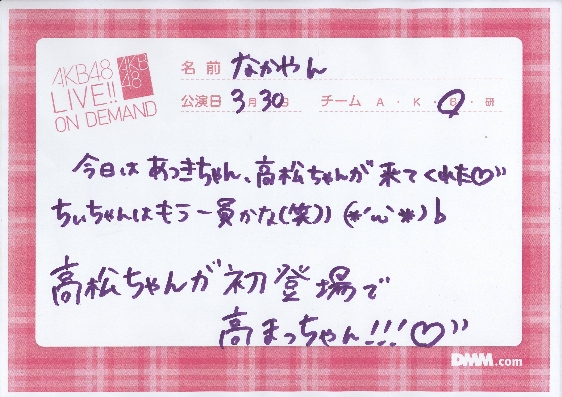 AKB48
LIVE!!
ON DEMAND
AKB
48
名前 なかやん
公演日 3月30日 チーム A・K・B・研
今日はあっきちゃん、高松ちゃんが来てくれた♡"
ちぃちゃんはもう一員かな(笑)) (*´ω`*)b
高松ちゃんが初登場で
高まっちゃん!!!♡"
DMM.com